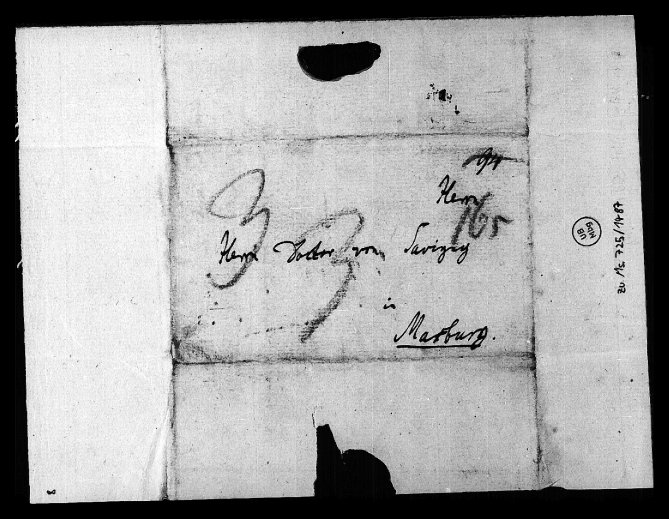 94
Herrn
165
Herrn Doctor von Savigny
3 3
in
Marburg.
UB
Mbg
zu Ms. 725/1487